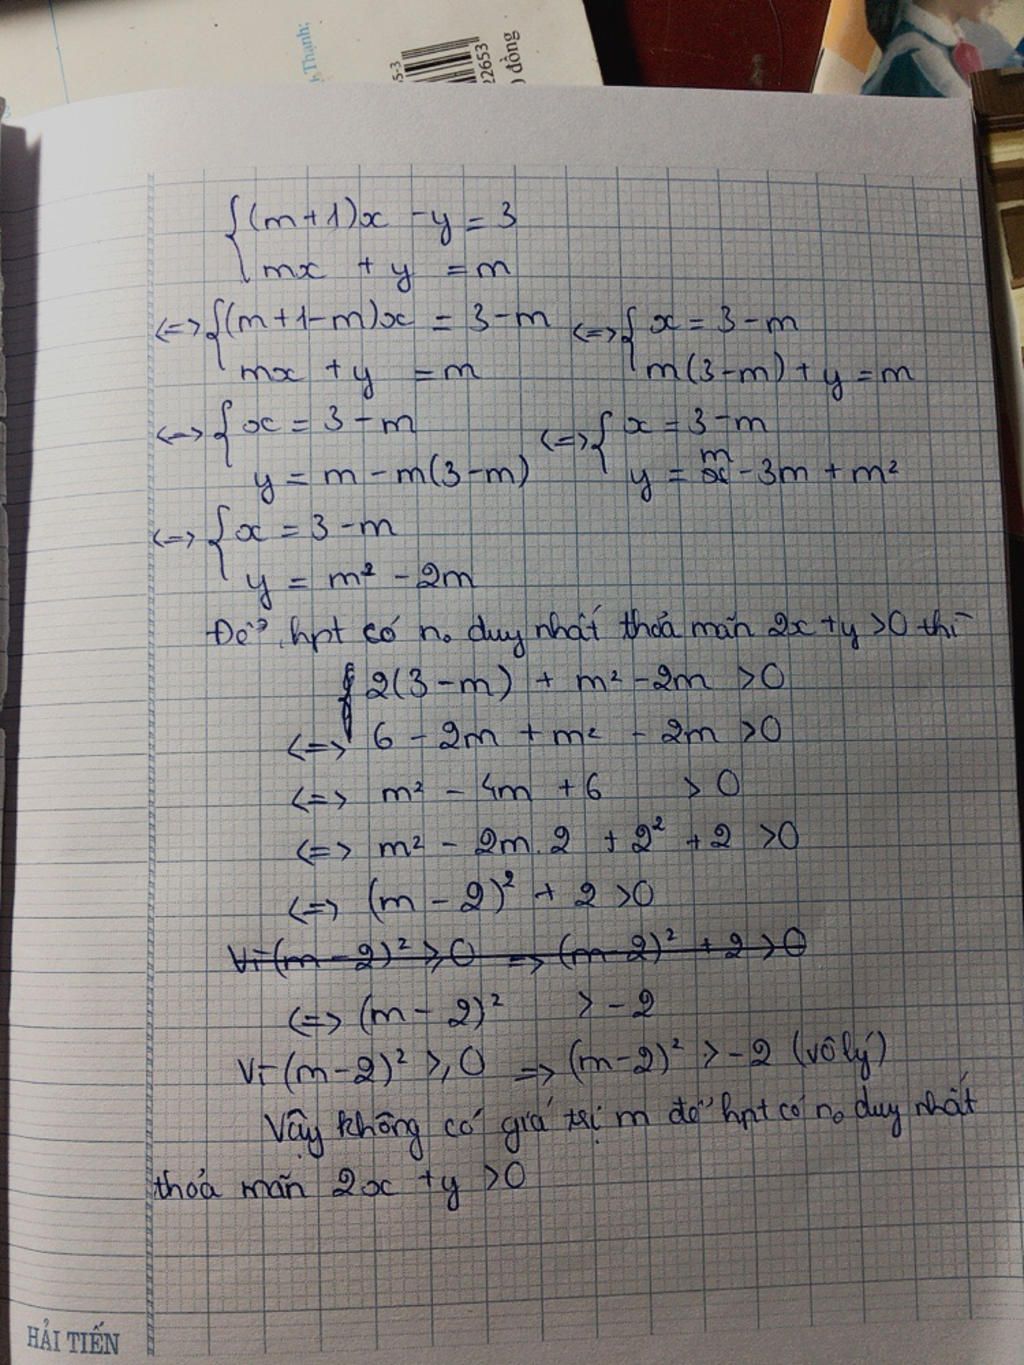 Thạnh;
5-3
22653
đồng
{(m+1)x - y = 3
mx + y = m
<=> {(m+1-m)x = 3-m <=> {x = 3-m
mx + y = m m(3-m) + y = m
<=> {x = 3-m <=> {x = 3-m
y = m - m(3-m) y = m - 3m + m²
<=> {x = 3-m
y = m² - 2m
Để hpt có n₀ duy nhất thoả mãn 2x+y >0 thì
2(3-m) + m² - 2m >0
<=> 6 - 2m + m² - 2m >0
<=> m² - 4m + 6 > 0
<=> m² - 2m.2 + 2² + 2 >0
<=> (m-2)² + 2 >0
Vì (m-2)² ≥ 0 => (m-2)² + 2 > 0
<=> (m-2)² > -2
Vì (m-2)² ≥ 0 => (m-2)² > -2 (vô lý)
Vậy không có giá trị m để hpt có n₀ duy nhất
thoả mãn 2x + y >0
HẢI TIẾN